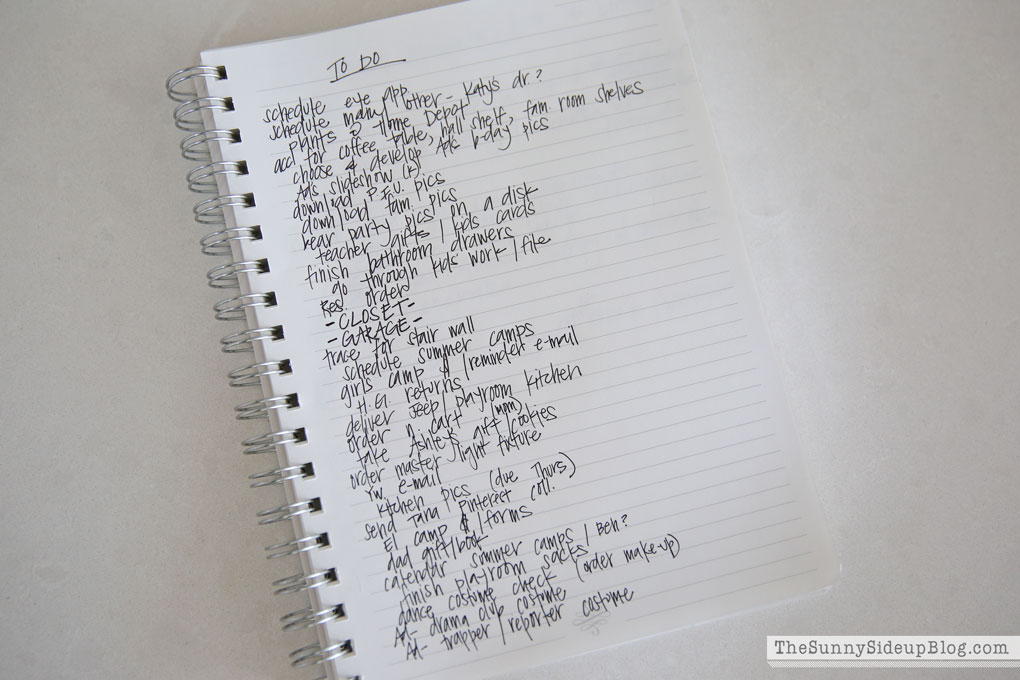 TO DO
schedule eye app
schedule many other - Katy's dr.?
plants @ Home Depot
acc for coffee table, hall shelf, fam room shelves
choose & develop Ad's b-day pics
Ad's slideshow (K)
download P.F.U. pics
download fam pics
bear party pics / on a disk
teacher gifts / kids cards
finish bathroom drawers
go through kids work / file
Res. order
- CLOSET -
- GARAGE -
trace for stair wall
schedule summer camps
girls camp $ / reminder e-mail
H.G. returns
deliver Jeep / playroom kitchen
order n. cart (mom)
take Ashley's gift / cookies
order master light fixture
rw e-mail
kitchen pics (due Thurs)
send Tana Pinterest coll.
El camp $ / forms
dad gift/book
calendar summer camps / Beh?
finish playroom sacks
dance costume check (order make-up)
Ad- drama club costume
Ad- trapper / reporter costume
TheSunnySideupBlog.com